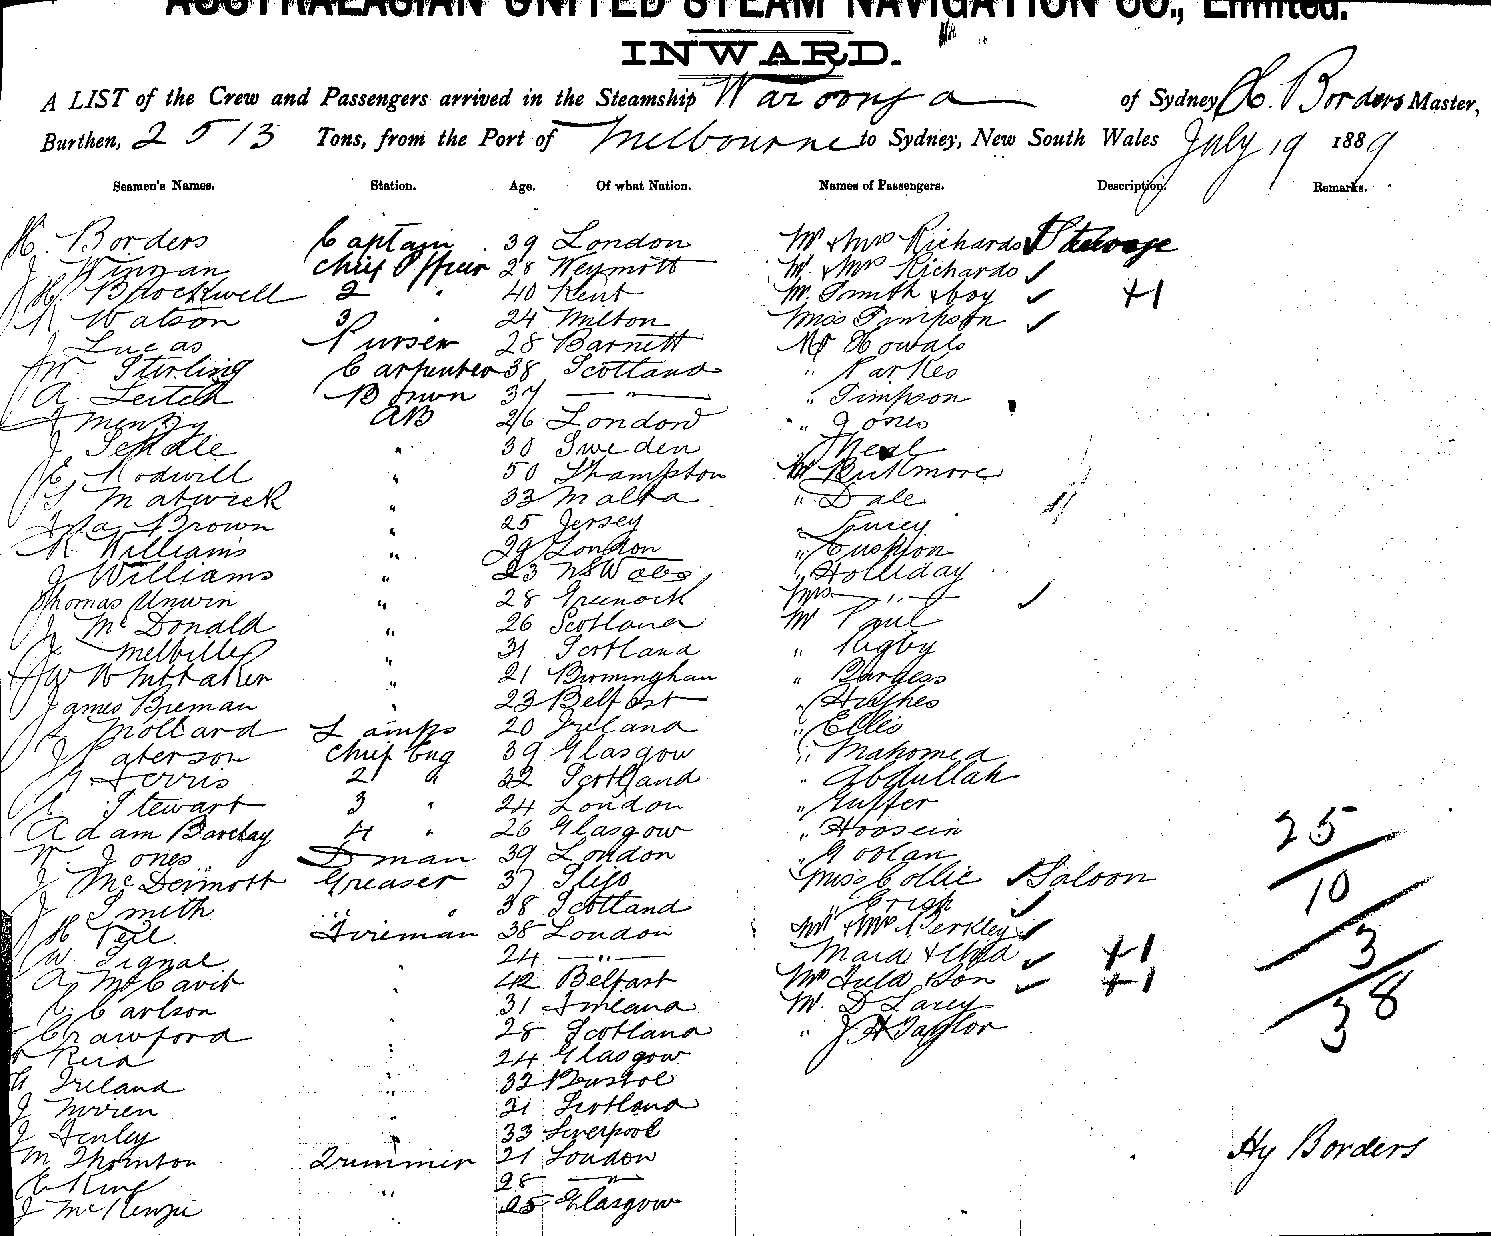 AUSTRALASIAN UNITED STEAM NAVIGATION CO., Limited.
INWARD.
A LIST of the Crew and Passengers arrived in the Steamship Waroonga of Sydney, H. Borders Master,
Burthen, 2513 Tons, from the Port of Melbourne to Sydney, New South Wales July 19 1889
Seamen's Names. Station. Age. Of what Nation. Names of Passengers. Description. Remarks.
H. Borders Captain 39 London Mr & Mrs Richards Steerage
J Chief Officer 28 Mr & Mrs Richards
H Brockwell 2 " 40 Kent Mr Smith & boy +1
R Watson 3 " 24 Milton Miss Timpson
J Lucas Purser 28 Barnett Mr
W Stirling Carpenter 38 Scotland " Parkes
A Leitch 37 — " — " Timpson
J Menzy AB 26 London " Jones
J " 30 Sweden Neal
E Rodwill " 50 Shampton Mr
S Matwick " 33 Malta " Dale
Brown " 25 Jersey
R Williams " 29 London " Cushion
J Williams " 23 NSWales " Holliday
Thomas Unwin " 28 Greenock Mrs — " —
J McDonald " 26 Scotland Mr Paul
Melville 31 Scotland " Rigby
W Whittaker " 21 Birmingham " Burgess
James Breman " 23 Belfast " Hughes
Mollard Lamps 20 Ireland " Ellis
J Paterson Chief Eng 39 Glasgow " Mahomed
Ferris 2 " 32 Scotland " Abdullah
A Stewart 3 " 24 London " Guffer
Adam Barclay 4 " 26 Glasgow " Hoosein
W. Jones Dman 39 London " Goolan
J McDermott Greaser 37 Sligo Miss Collie Saloon
J Smith " " 38 Scotland " Crisp
H Peil Fireman 38 London Mr & Mrs Berkley
W Signal " 24 — " — Maid & Child +1
A McCavit " 42 Belfast Mrs Tuld & Son +1
C Carlson " 31 Finland Mr. D Larey
Crawford " 28 Scotland " J H Taylor
Reid " 24 Glasgow
Ireland " 32 Bristol
J " 31 Scotland
J Fenley " 33 Liverpool
M Thornton Trimmer 21 London
C King " 28 — " —
J McKenzie 25 Glasgow
25
10
3
38
Hy Borders